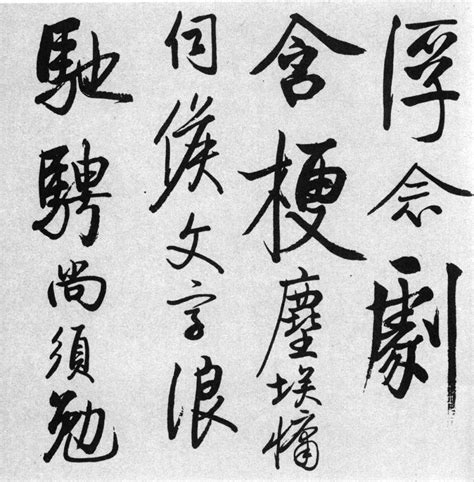 浮念劇
含梗塵埃慵
伺候文字浪
馳騁尚須勉